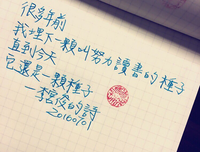 很多年前
我埋下一顆叫努力讀書的種子
直到今天
它還是一顆種子
—李宮俊的詩
20160101